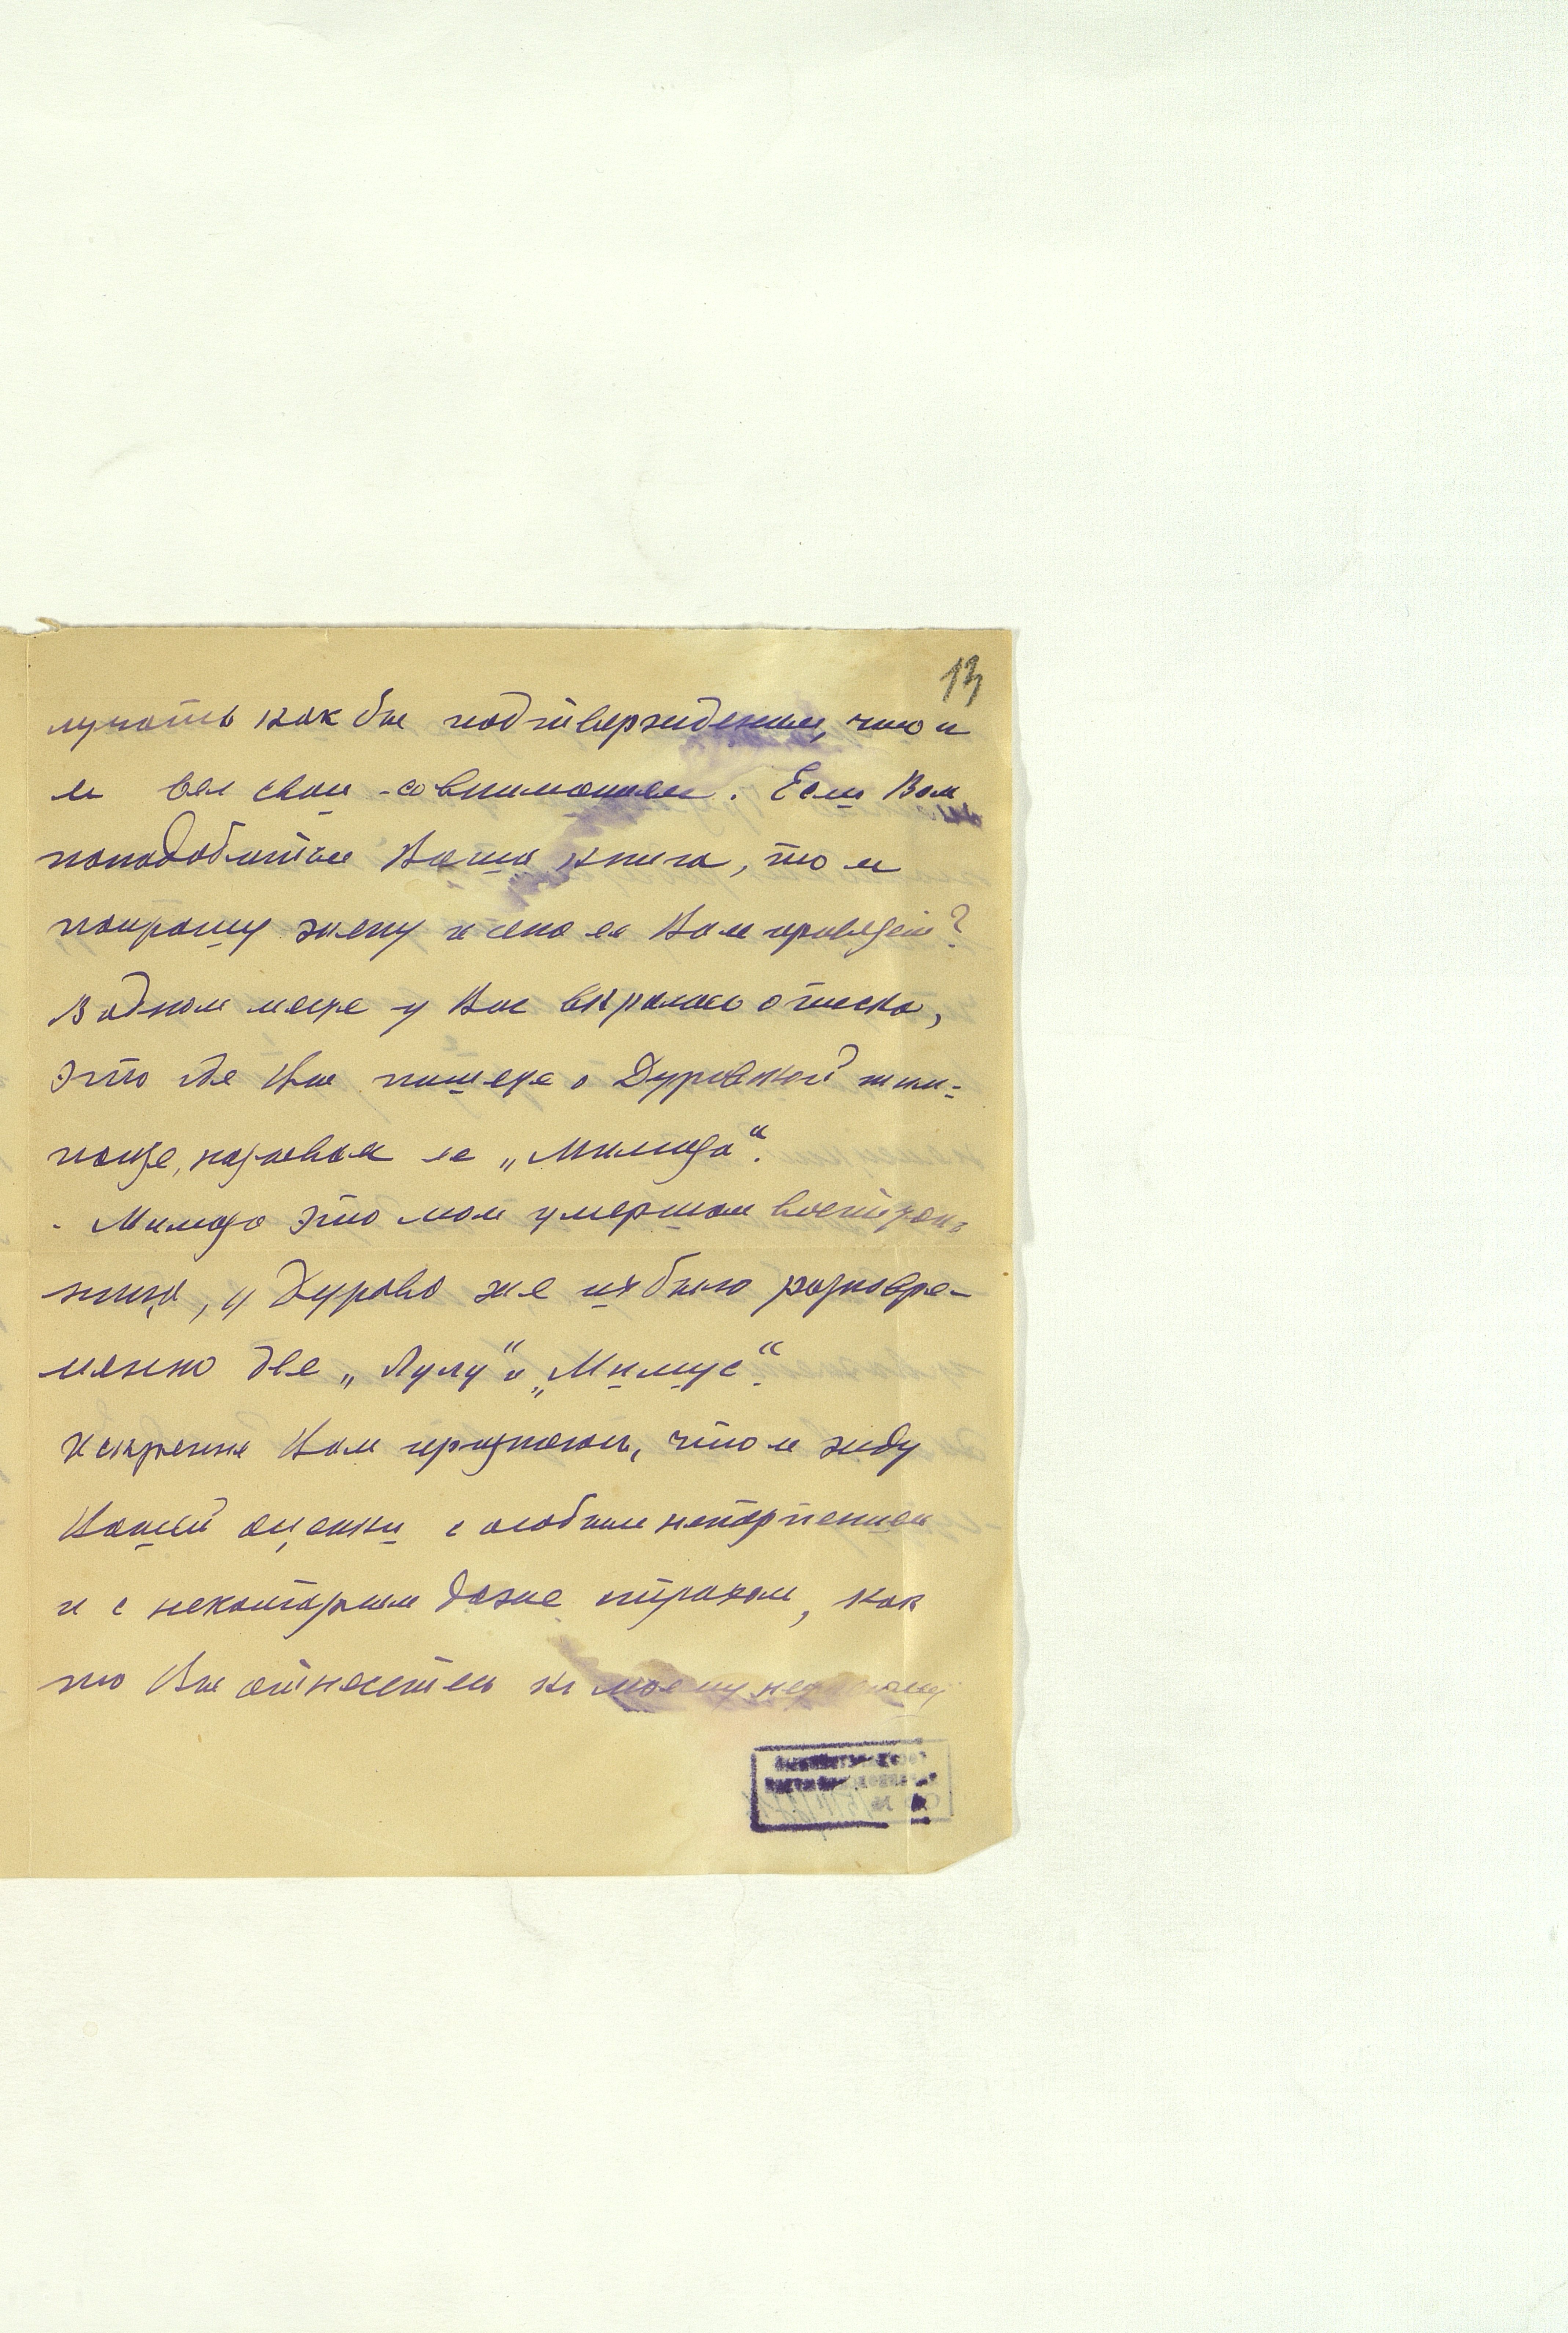 13
лучать как бы подтверждении, что и
я вел свои
понадобится Ваша книга, то я
попрошу жену и она ее Вам приведет?
В одном месте у Вас вкралась описка,
это где Вы пишете о Дуровской шим-
панзе, называя ее „Мимоза“.
Мимоза это моя умершая воспитан-
ница, у Дурова же их было разновре-
менно две „Лулу“ и „Мимус“.
Искренне Вам признаюсь, что я жду
Вашей оценки с особым нетерпением
и с некоторым даже страхом, как
то Вы отнесетесь к моему